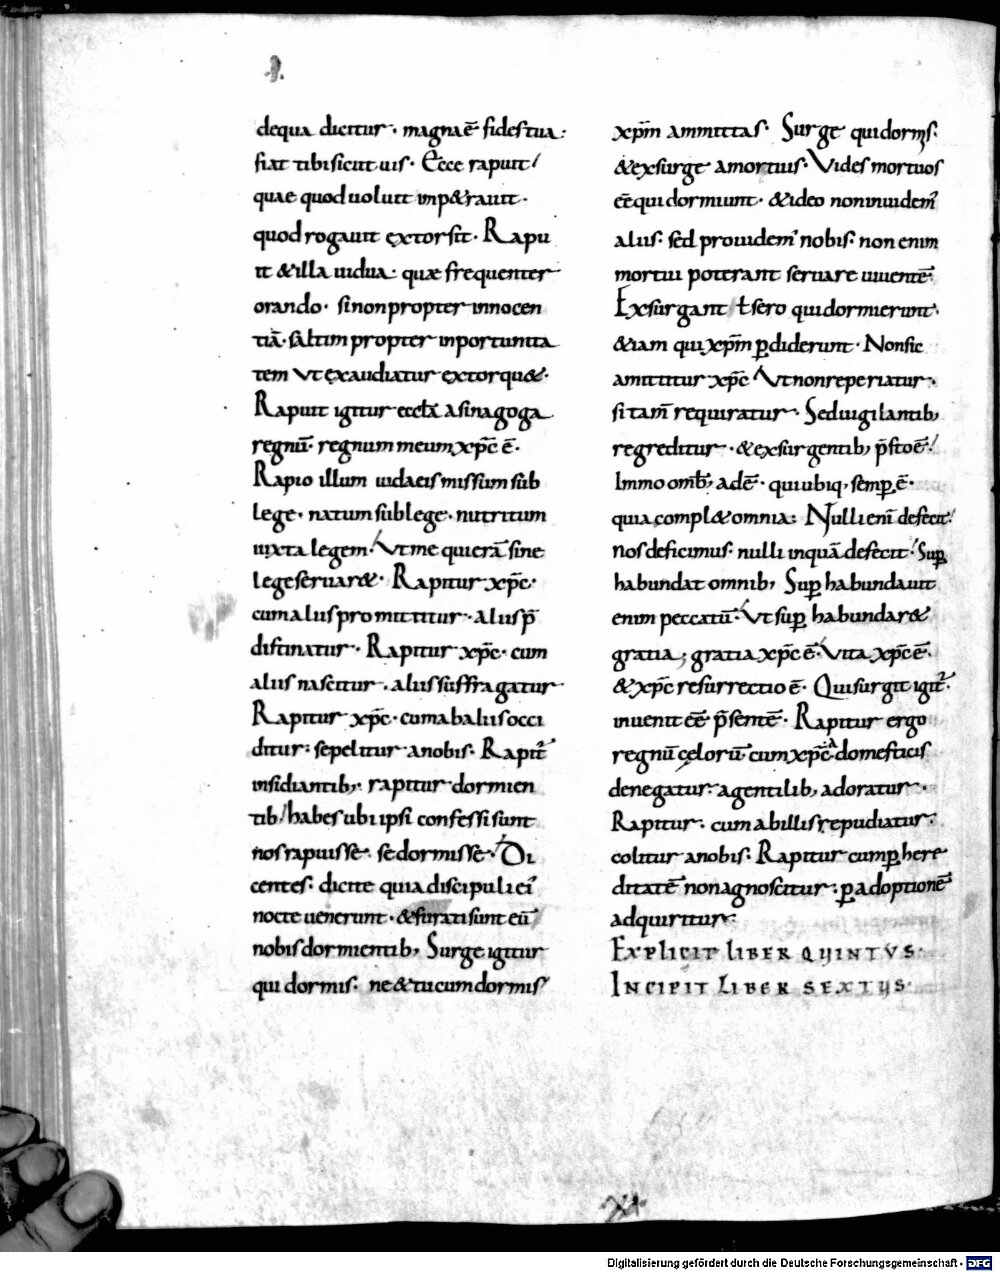 dequa dicitur · magnaē fidestua:
fiat tibi sicut uis · Ecce rapuit/
quae quod uoluit imp&rauit ·
quod rogauit extorsit · Rapu
it & illa uidua · quae frequenter
orando · si non propter innocen
tiā · saltim propter inportunita
tem Ut exaudiatur extorqu& ·
Rapuit igitur eccła a sinagoga
regnū · regnum meum xp̄c ē ·
Rapio illum iudaeis missum sub
lege · natum sub lege · nutritum
iuxta legem · Ut me qui erā sine
lege seruar& · Rapitur xp̄c ·
cum aliis promittitur · aliis p̄
distinatur · Rapitur xp̄c · cum
aliis nascitur · aliis suffragatur
Rapitur xp̄c · cum ab aliis occi
ditur: sepelitur a nobis · Rapit̄
insidiantib; · rapitur dormien
tib; / habes ubi ipsi confessi sunt
nos rapuisse · se dormisse · Di
centes: dicite quia discipuli ei'
nocte uenerunt · & furati sunt eū
nobis dormientib; Surge igitur
qui dormis: ne & tu cum dormis
xp̄m ammittas · Surge qui dormis:
& exsurge a mortuis · Vides mortuos
eē qui dormiunt · & ideo non inuidem'
aliis: sed prouidem' nobis: non enim
mortui poterant seruare uiuentē ·
Exsurgant ł sero qui dormierunt ·
& iam qui xp̄m p̱diderunt · Non sic
amittitur xp̄c Ut non reperiatur ·
si tam̄ requiratur · Sed uigilantib;
regreditur · & exsurgentib; p̄sto ē ·
Immo omīb; adē · qui ubiq; semp̱ ē ·
quia compl& omnia: Nulli eni̅ defecit/
nos deficimus · nulli inquā defecit · Sup̱
habundat omnib; Sup̱ habundauit
enim peccatū · Ut sup̱ habundar&
gratia ; gratia xp̄c ē · Vita xp̄c ē ·
& xp̄c resurrectio ē · Qui surgit igit̄ ·
inuenit eē p̄sentē · Rapitur ergo
regnū celorū cum xp̄c a domesticis
denegatur · a gentilib; adoratur ·
Rapitur · cum ab illis repudiatur ·
colitur a nobis · Rapitur cum p̱ here
ditatē non agnoscitur · p̱ adoptionē
adquiritur ·
EXPLICIT LIBER QUINTVS ·
INCIPIT LIBER SEXTUS ·
XI
Digitalisierung gefördert durch die Deutsche Forschungsgemeinschaft - DFG